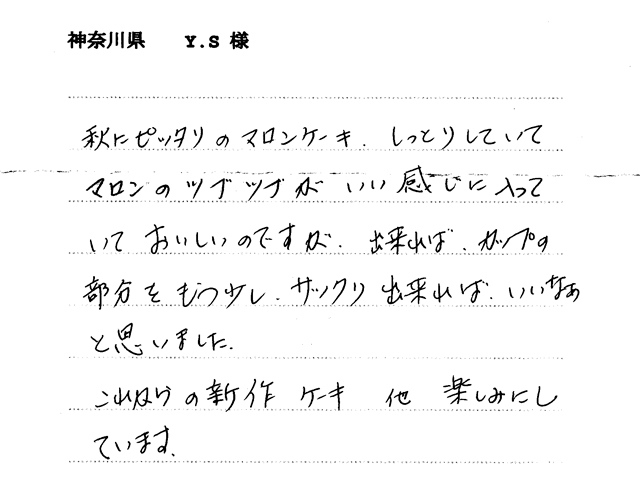 神奈川県　　Y.S 様
秋にピッタリのマロンケーキ、しっとりしていて
マロンのツブツブがいい感じに入って
いておいしいのですが、出来れば、カップの
部分をもう少し、サックリ出来れば、いいなぁ
と思いました。
これからの新作ケーキ 他 楽しみにし
ています。